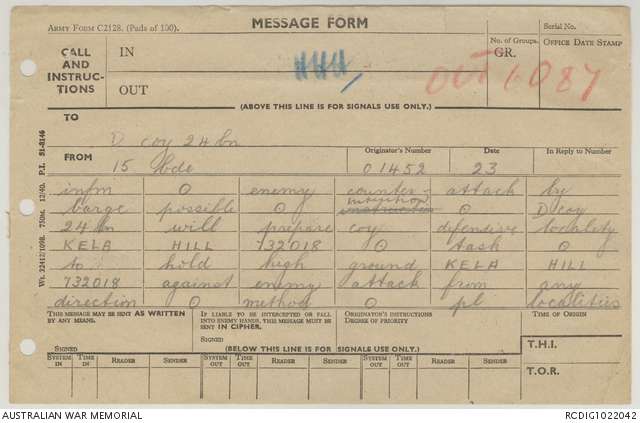 ARMY FORM C2128. (Pads of 100).
MESSAGE FORM
Serial No.
CALL AND INSTRUC-TIONS
IN
OUT
No. of Groups.
GR.
OFFICE DATE STAMP
OUT 1087
(ABOVE THIS LINE IS FOR SIGNALS USE ONLY.)
TO
D coy 24 bn
FROM
Originator's Number
Date
In Reply to Number
15 bde
01452
23
infm O enemy counter- attack by
barge possible O intention instruction O D coy
24 bn will prepare coy defensive locality
KELA HILL 732018 O task O
to hold high ground KELA HILL
732018 against enemy attack from any
direction O method O pl localities
THIS MESSAGE MAY BE SENT AS WRITTEN BY ANY MEANS.
SIGNED
IF LIABLE TO BE INTERCEPTED OR FALL INTO ENEMY HANDS, THIS MESSAGE MUST BE SENT IN CIPHER.
SIGNED
ORIGINATOR'S INSTRUCTIONS
DEGREE OF PRIORITY
TIME OF ORIGIN
(BELOW THIS LINE IS FOR SIGNALS USE ONLY.)
T.H.I.
SYSTEM IN
TIME IN
READER
SENDER
SYSTEM OUT
TIME OUT
READER
SENDER
SYSTEM OUT
TIME OUT
READER
SENDER
T.O.R.
P.I. 51-8146
Wt. 22412/1098. 750m. 12/40.
AUSTRALIAN WAR MEMORIAL
RCDIG1022042